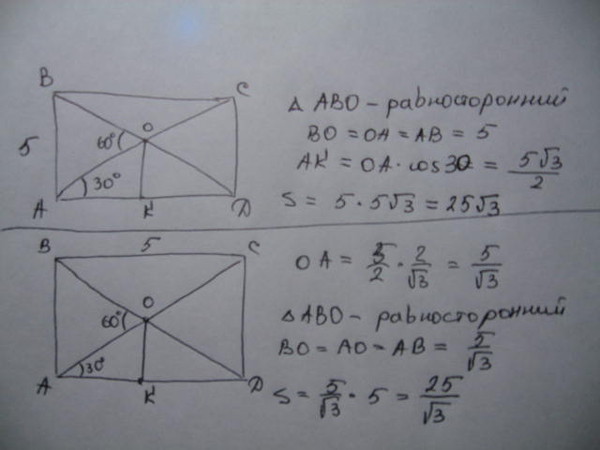 B C
5 60° O
30°
A K D
Δ ABO - равносторонний
BO = OA = AB = 5
AK = OA · cos 30 = 5√3/2
S = 5 · 5√3 = 25√3
B 5 C
60° O
30°
A K D
OA = 5/2 · 2/√3 = 5/√3
Δ ABO - равносторонний
BO = AO = AB = 5/√3
S = 5/√3 · 5 = 25/√3